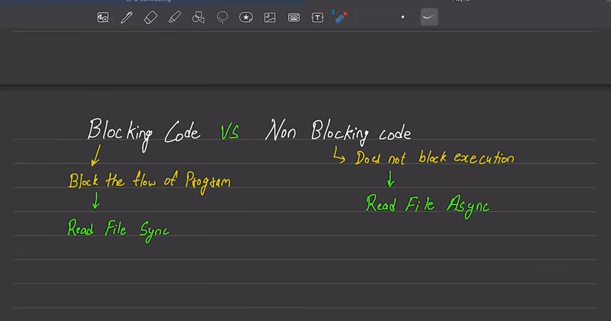 Blocking Code VS Non Blocking code
Block the flow of Program
Read File Sync
Does not block execution
Read File Async